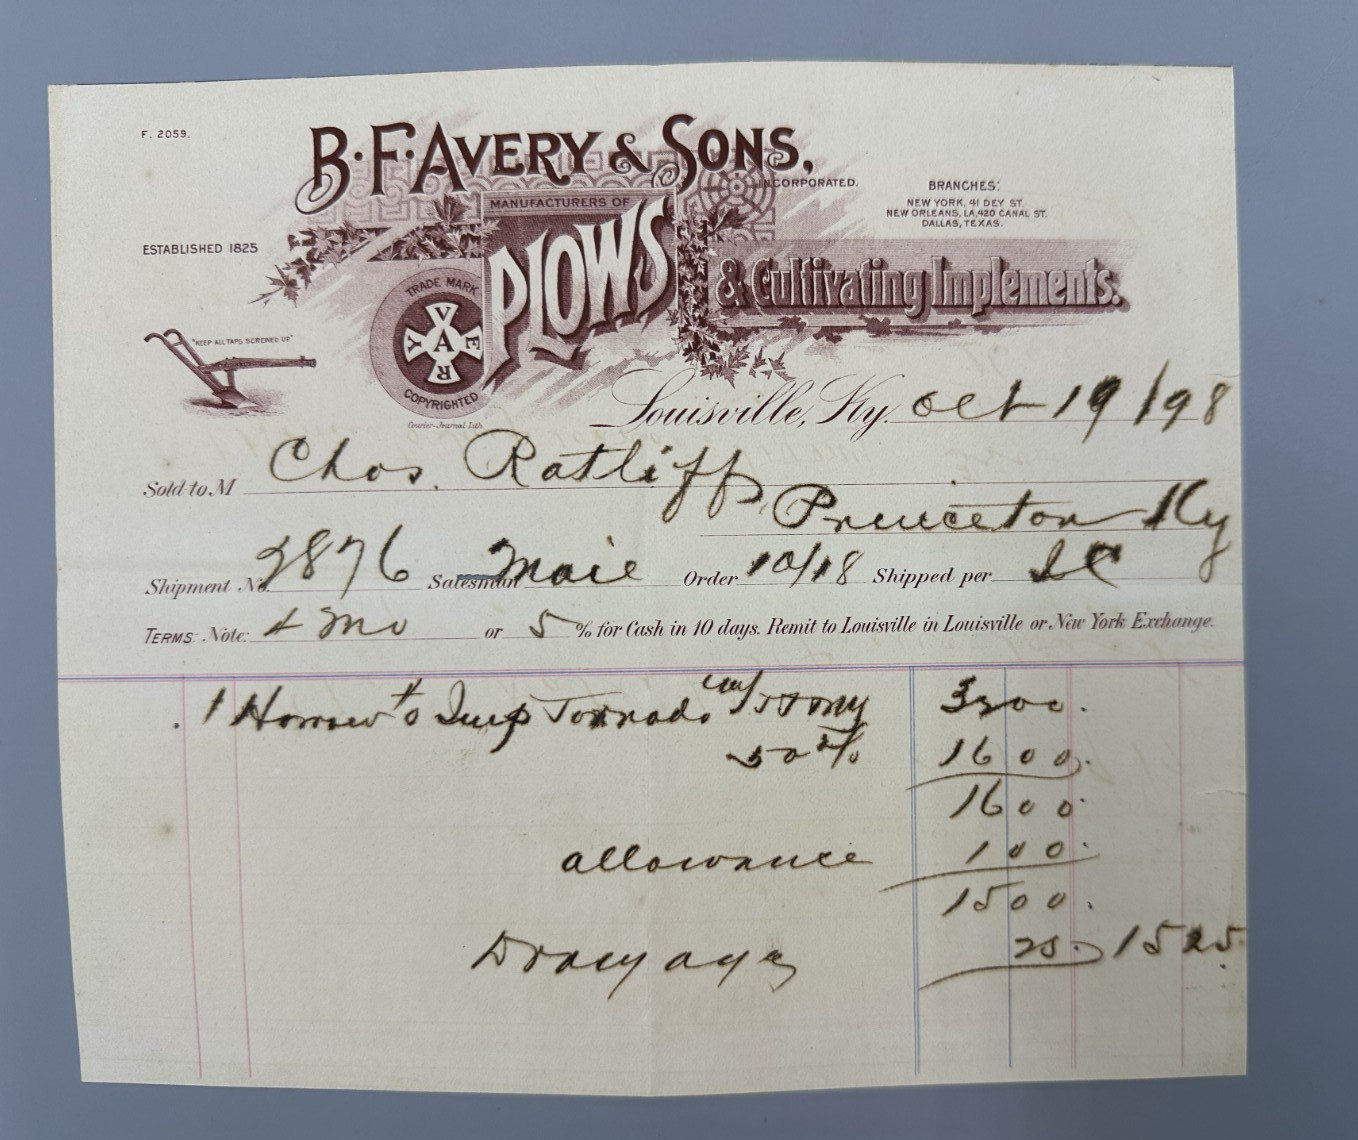 F. 2059.
B. F. AVERY & SONS,
INCORPORATED.
MANUFACTURERS OF
PLOWS
& Cultivating Implements.
BRANCHES:
NEW YORK, 41 DEY ST.
NEW ORLEANS, LA, 420 CANAL ST.
DALLAS, TEXAS.
ESTABLISHED 1825
"KEEP ALL TAPS SCREWED UP"
TRADE MARK
AVERY
COPYRIGHTED
Courier-Journal Lith.
Louisville, Ky. Oct 19/98
Sold to M Chas. Ratliff,
Princeton Ky
Shipment No. 2876 Salesman Order 10/18 Shipped per IC
TERMS: Note: 4 Mo or 5 % for Cash in 10 days. Remit to Louisville in Louisville or New York Exchange.
1 Harrow # 0 Imp Tornado 3200.
50 % 1600.
1600.
allowance 100.
1500.
Drayage 25. 1525.